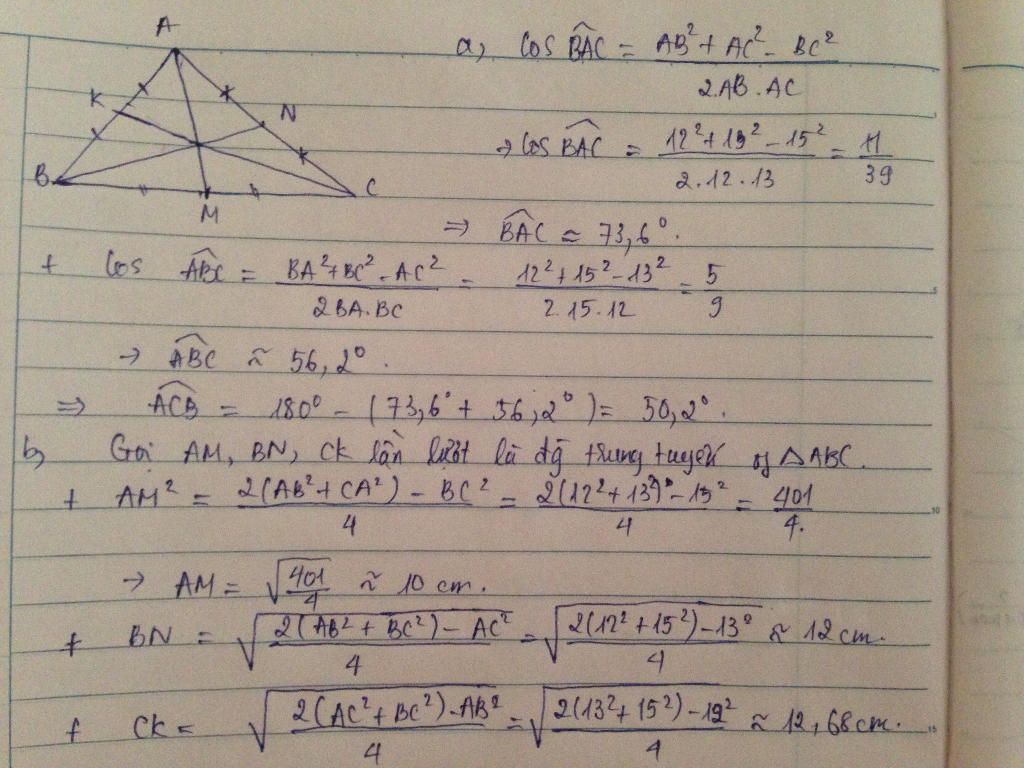 A
K
N
B
M
C
a, Cos BÂC = (AB² + AC² - BC²) / (2.AB.AC)
→ Cos BÂC = (12² + 13² - 15²) / (2.12.13) = 11/39
⇒ BÂC ≈ 73,6°.
+ Cos ABC = (BA² + BC² - AC²) / (2BA.BC) = (12² + 15² - 13²) / (2.15.12) = 5/9
→ ABC ≈ 56,2°.
⇒ ACB = 180° - (73,6° + 56,2°) = 50,2°.
b, Gọi AM, BN, CK lần lượt là đg̃ trung tuyến of △ABC.
+ AM² = (2(AB² + CA²) - BC²) / 4 = (2(12² + 13²) - 15²) / 4 = 401/4.
→ AM = √(401/4) ≈ 10 cm.
+ BN = √((2(AB² + BC²) - AC²) / 4) = √((2(12² + 15²) - 13²) / 4) ≈ 12 cm.
+ CK = √((2(AC² + BC²) - AB²) / 4) = √((2(13² + 15²) - 12²) / 4) ≈ 12,68 cm.